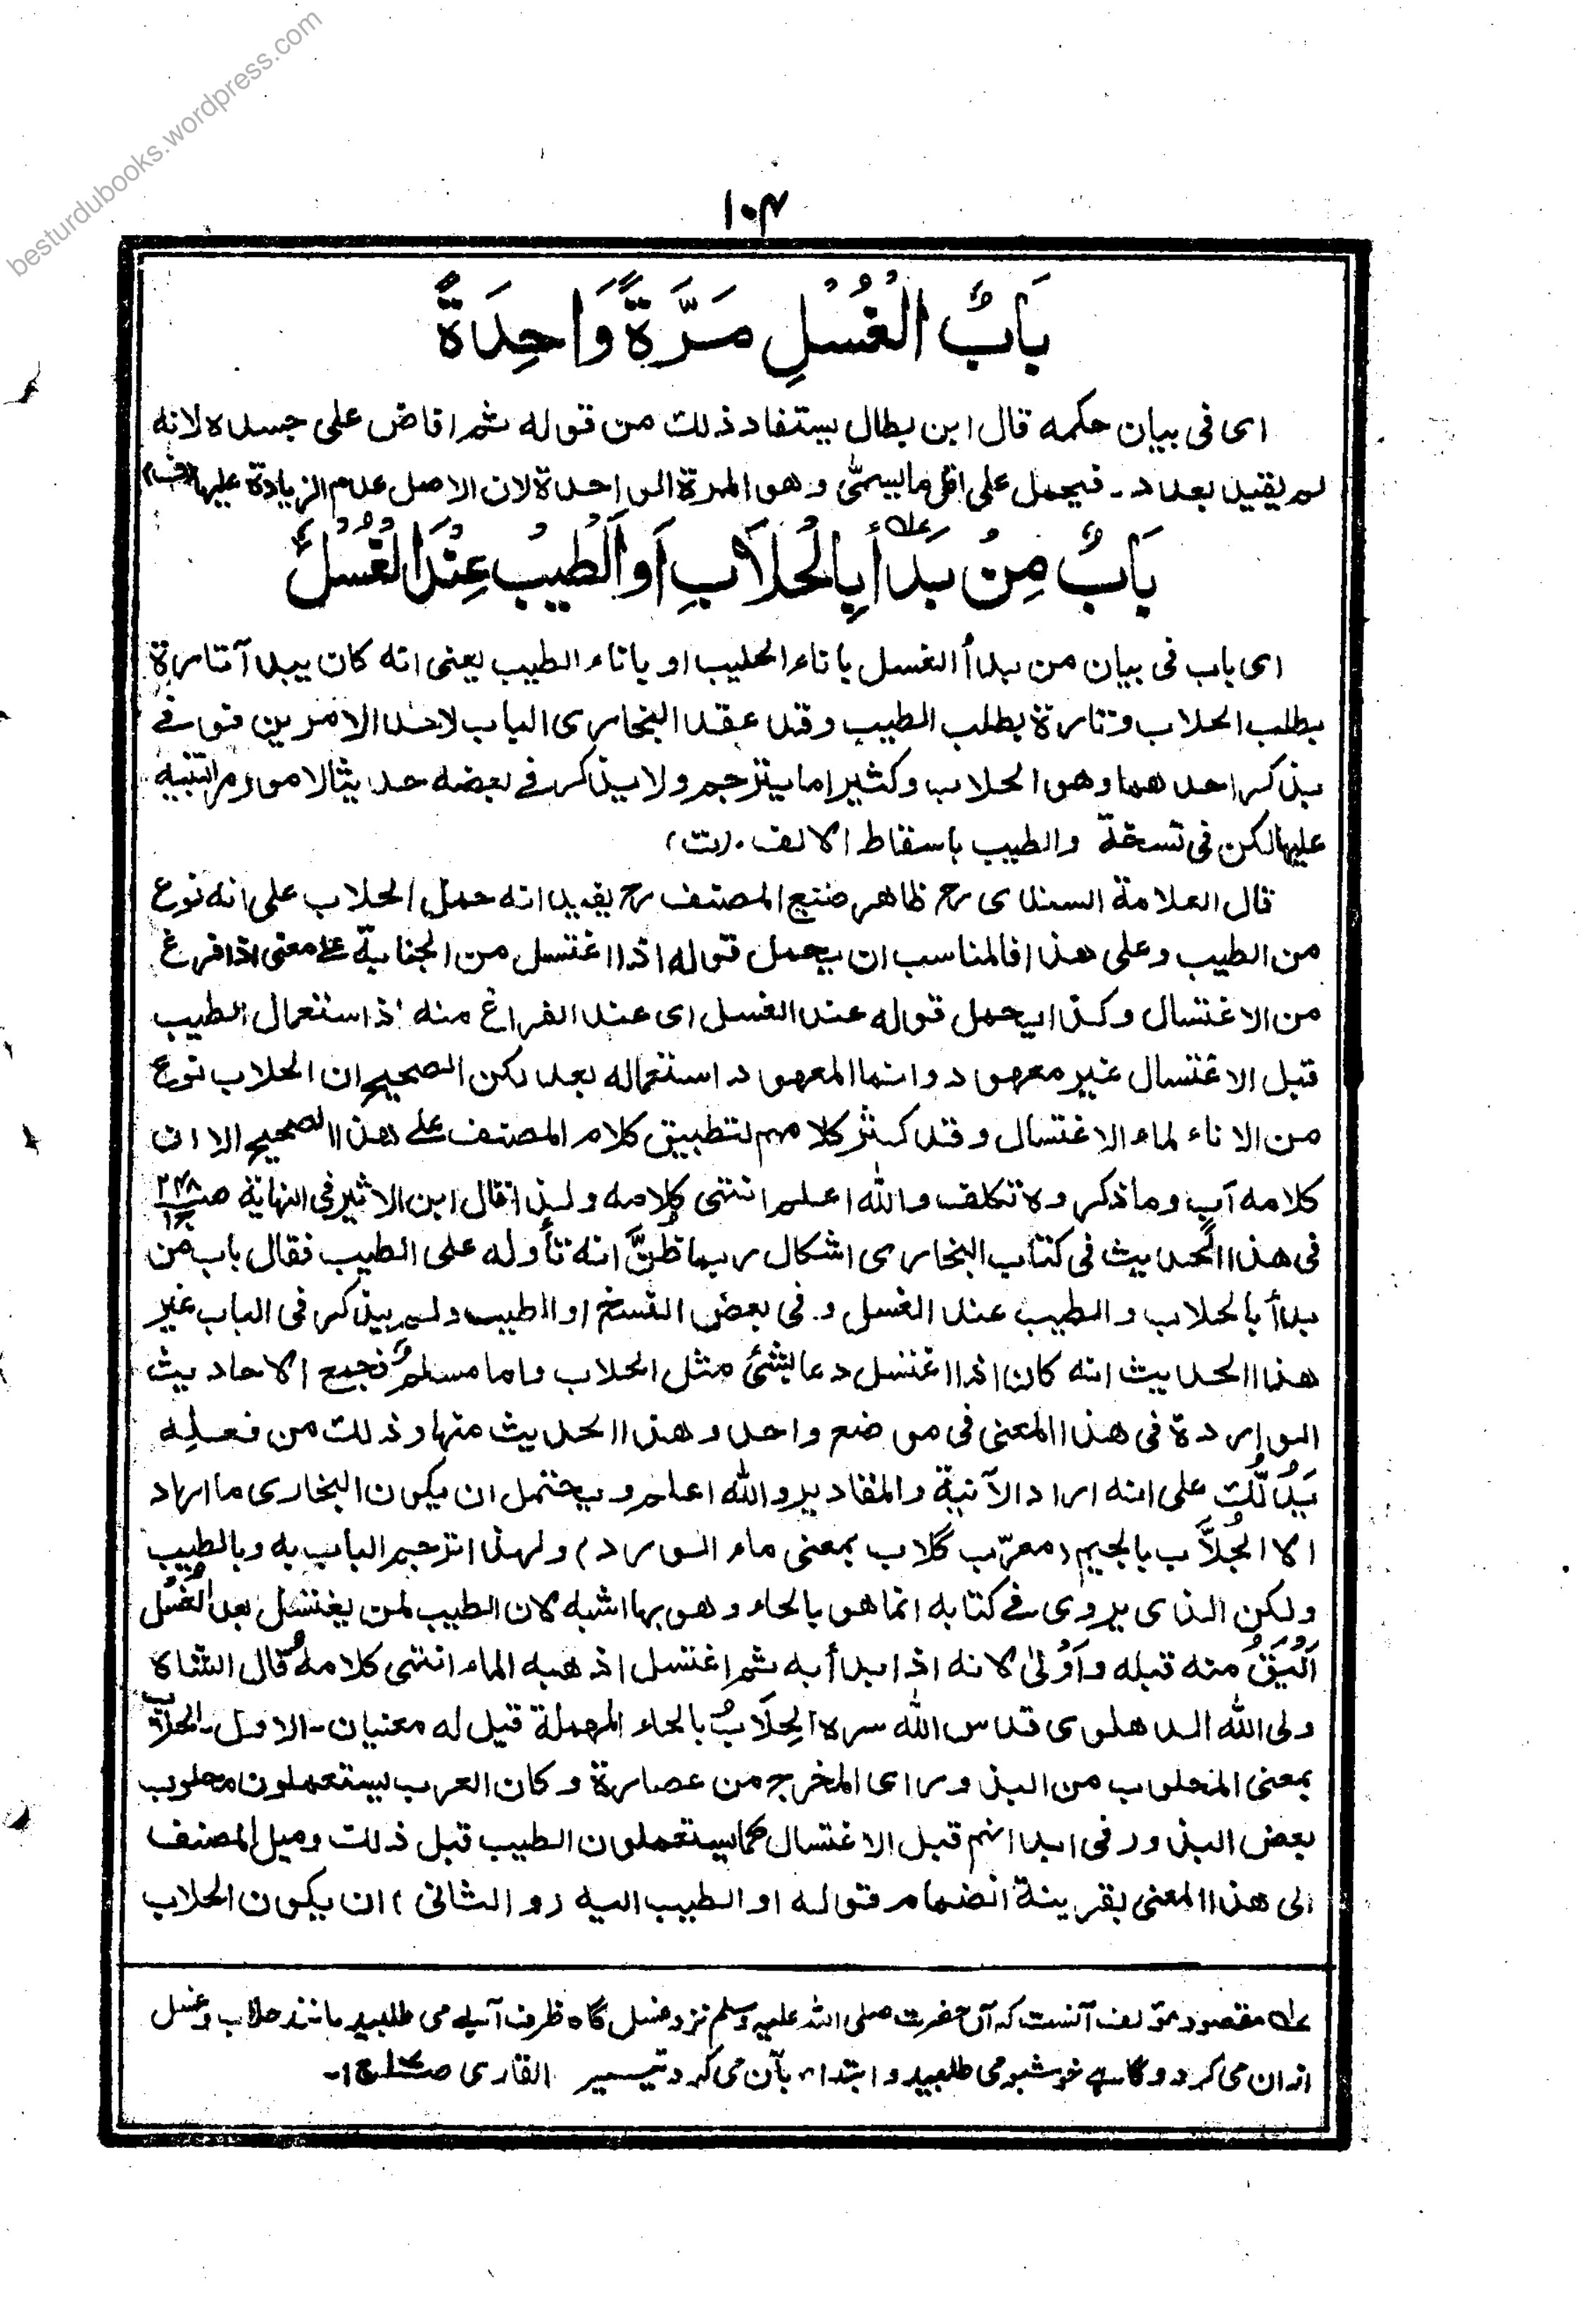 besturdubooks.wordpress.com
۱۰۴
بَابُ الْغُسْلِ مَرَّةً وَاحِدَةً
ای فی بیان حکمه قال ابن بطال یستفاد ذلک من قوله ثم افاض علی جسده لانه
لم یقید بعدد۔ فیحمل علی اقل ما یسمّٰی وهو المرة الواحدة لان الاصل عدم الزیادة علیها (ف)
بَابُ مِنْ بَدَأَ بِالْحِلَابِ اَوِ الطِّیْبِ عِنْدَ الْغُسْلِ
ای باب فی بیان من بدأ الغسل باناء الحلیب او باناء الطیب یعنی انه کان یبدأ تارة
بطلب الحلاب وتارة بطلب الطیب وقد عقد البخاری الباب لاحد الامرین فوفی
بذکر احدهما وهو الحلاب وکثیرا ما یترجم ولا یذکر فی بعضه حدیثا لامور مر التنبیه
علیها لکن فی نسخة والطیب باسقاط الالف۔ (ت)
قال العلامة السندی رح ظاهر صنیع المصنف رح یفید انه حمل الحلاب علی انه نوع
من الطیب وعلی هذا فالمناسب ان یحمل قوله اذا اغتسل من الجنابة علی معنی اذا فرغ
من الاغتسال وکذا یحمل قوله عند الغسل ای عند الفراغ منه اذ استعمال الطیب
قبل الاغتسال غیر معهود وانما المعهود استعماله بعد لکن الصحیح ان الحلاب نوع
من الاناء لماء الاغتسال وقد کثر کلامهم لتطبیق کلام المصنف علی هذا الصحیح الا ان
کلامه آب وما ذکروه تکلف والله اعلم انتهی کلامه ولذا قال ابن الاثیر فی النهایة صـ ۲۴۸ ج۱
فی هذا الحدیث فی کتاب البخاری اشکال ربما ظُنَّ انه تأوله علی الطیب فقال باب من
بدأ بالحلاب والطیب عند الغسل و۔ فی بعض النسخ او الطیب ولم یذکر فی الباب غیر
هذا الحدیث انه کان اذا اغتسل دعا بشئ مثل الحلاب واما مسلم فجمع الاحادیث
الواردة فی هذا المعنی فی موضع واحد وهذا الحدیث منها وذلک من فعلِه
یَدُلُّکَ علی انه اراد الآنیة والمقادیر والله اعلم ویحتمل ان یکون البخاری ما اراد
الا الجُلّاب بالجیم (معرّب گلاب بمعنی ماء الورد) ولهذا ترجم الباب به وبالطیب
ولکن الذی یروی فی کتابه انما هو بالحاء وهو بها اشبه لان الطیب لمن یغتسل بعد الغُسْل
اَلْیَقُ منه قبله وَاَوْلیٰ لانه اذا بدأ به ثم اغتسل اذهبه الماء انتهی کلامه قال الشاه
ولی الله الدهلوی قدس الله سره اَلْحِلَابُ بالحاء المهملة قیل له معنیان۔ الاول۔ الحلاب
بمعنی المحلوب من البذور ای المخرج من عصارة وکان العرب یستعملون محلوب
بعض البذور فی ابدانهم قبل الاغتسال کما یستعملون الطیب قبل ذلک ومیل المصنف
الی هذا المعنی بقرینة انضمام قوله او الطیب الیه (و الثانی) ان یکون الحلاب
ﻋﻠﻪ مقصود مؤلف آنست که آن حضرت صلی الله علیه وسلم نزد غسل گاه ظرف آبے می طلبید مانند حلاب و غسل
ازان می کرد و گاهے خوشبو می طلبید و ابتداء بآن می کرد تیسیر القاری ج۱۔